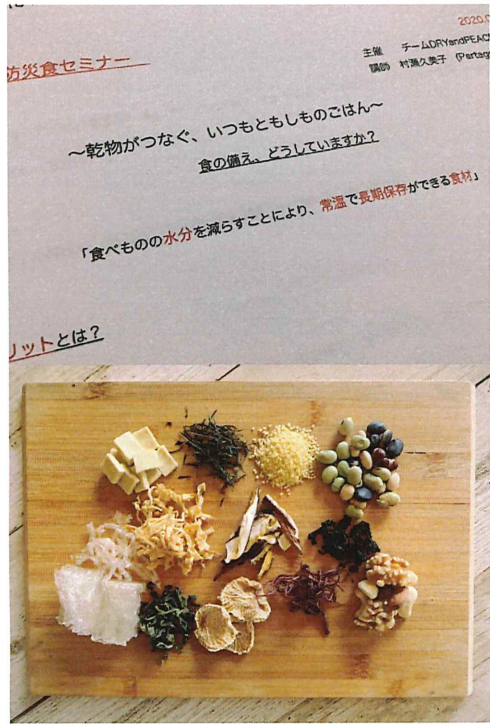 2020.0
主催　チームDRYandPEAC
防災食セミナー
講師　村瀬久美子　(Partag
～乾物がつなぐ、いつもともしものごはん～
食の備え、どうしていますか？
「食べものの水分を減らすことにより、常温で長期保存ができる食材」
リットとは？